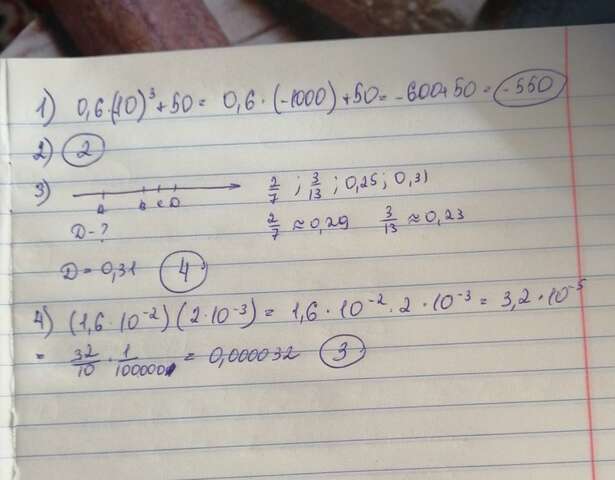 1) 0,6·(-10)³+50= 0,6·(-1000)+50=-600+50=-550
2) 2
3) A B C D 2/7 ; 3/13 ; 0,25 ; 0,31
D-? 2/7 ≈0,29 3/13 ≈0,23
D=0,31 4
4) (1,6·10⁻²)(2·10⁻³)= 1,6·10⁻²·2·10⁻³=3,2·10⁻⁵
= 32/10 · 1/100000 = 0,000032 3